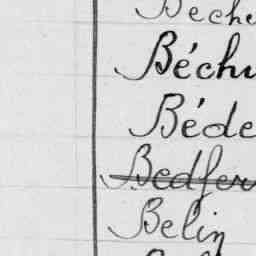 Beche
Béchu
Béde
Bedfer
Belin